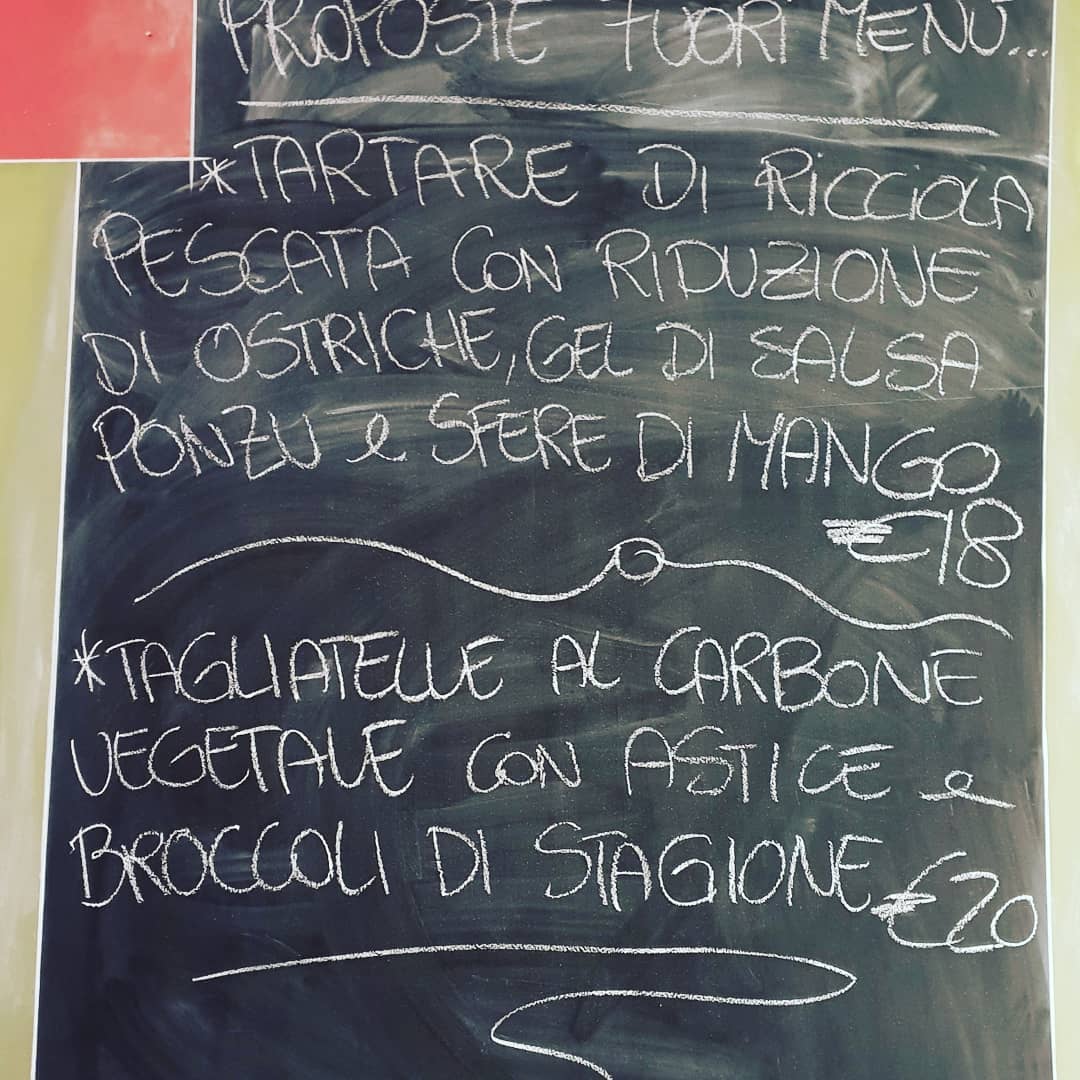 PROPOSTE FUORI MENÙ...
*TARTARE DI RICCIOLA
PESCATA CON RIDUZIONE
DI OSTRICHE, GEL DI SALSA
PONZU e SFERE DI MANGO
€18
*TAGLIATELLE AL CARBONE
VEGETALE CON ASTICE e
BROCCOLI DI STAGIONE
€20